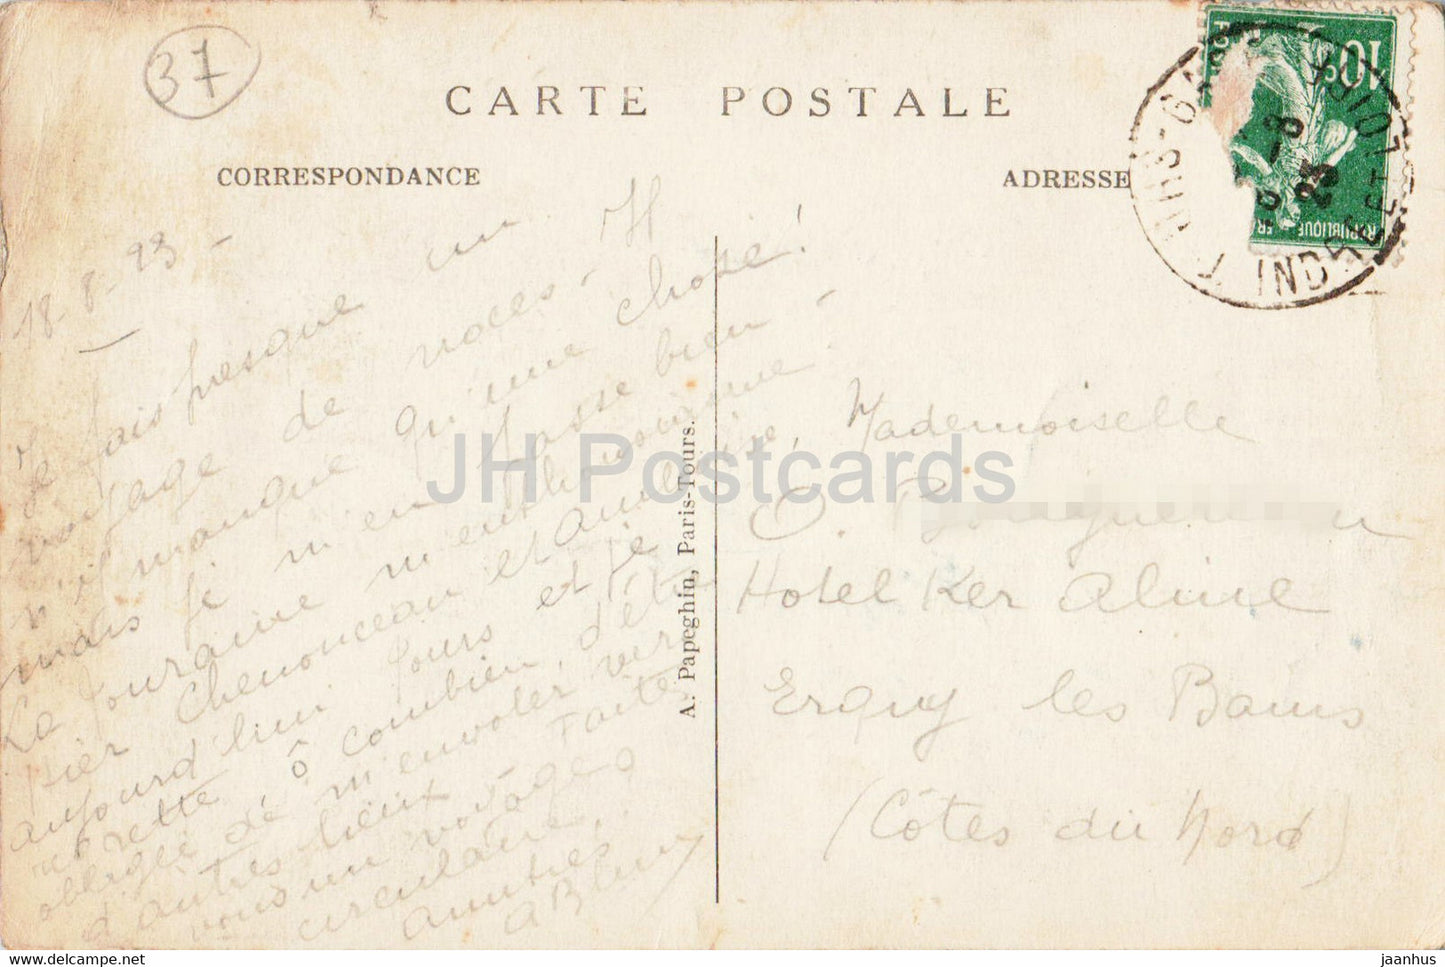 37
CARTE POSTALE
CORRESPONDANCE
ADRESSE
10
REPUBLIQUE
TOURS-GARE
18 -8
23
INDRE ET LOIRE
18-8-23-
Je fais presque un
voyage de noces.
n'il manque qu'une chose!
mais je m'en passe bien-
La Touraine m'enthousiasme-
hier Chenonceau et Amboise,
aujourd'hui Tours et je
regrette, ô combien, d'être
obligée de m'envoler vers
d'autres lieux. Faites
vous un voyage
circulaire.
Amitiés
A. Papeghin, Paris-Tours.
Mademoiselle
O.
Hotel Ker Aline
Erquy les Bains
(Côtes du Nord)
JH Postcards
hip-postcard.com
jaanhus